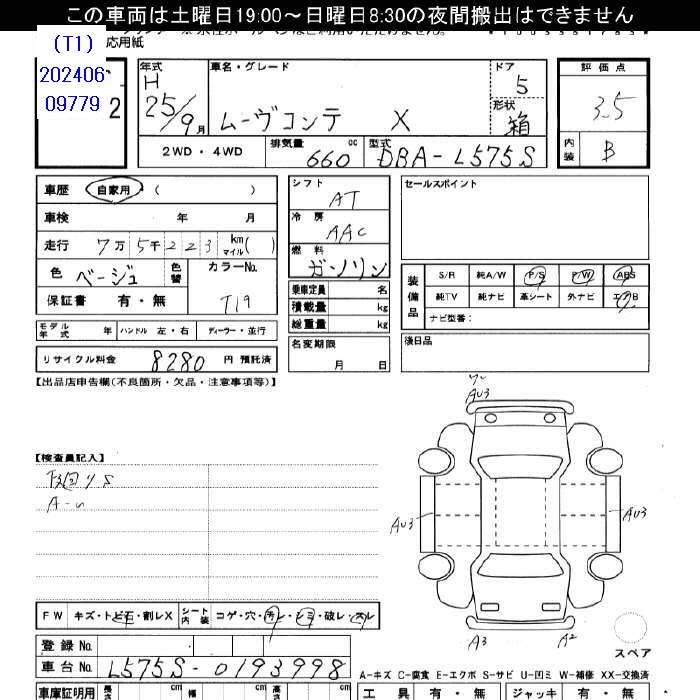 この車両は土曜日19:00～日曜日8:30の夜間搬出はできません
(T1)
応用紙
202406
09779
2
年式 H 25/9月
車名・グレード ムーヴコンテ X
ドア 5
形状 箱
評価点 3.5
内装 B
2WD・4WD
排気量 660 cc
型式 DBA-L575S
車歴 自家用 ( )
車検 年 月
走行 7万5千223 km マイル( )
色 ベージュ 色替
カラーNo. T19
保証書 有・無
モデル年式 年 ハンドル 左・右 ディーラー・並行
リサイクル料金 8280 円 預託済
シフト AT
冷房 AAC
燃料 ガソリン
乗車定員 名
積載量 kg
総重量 kg
名変期限 月 日
セールスポイント
装備品
S/R 純A/W P/S P/W ABS
純TV 純ナビ 革シート 外ナビ エアB
ナビ型番:
後日品
【出品店申告欄(不良箇所・欠品・注意事項等)】
【検査員記入】
AU3
AU3
AU3
A3
A2
スペア
FW キズ・トビ石・割レX シート内装 コゲ・穴・汚レ・シミ・破レ・スレ
登録No.
車台No. L575S-0193998
A-キズ C-腐食 E-エクボ S-サビ U-凹ミ W-補修 XX-交換済
車庫証明用 長さ cm 幅 cm 高さ cm
工具 有・無 ジャッキ 有・無